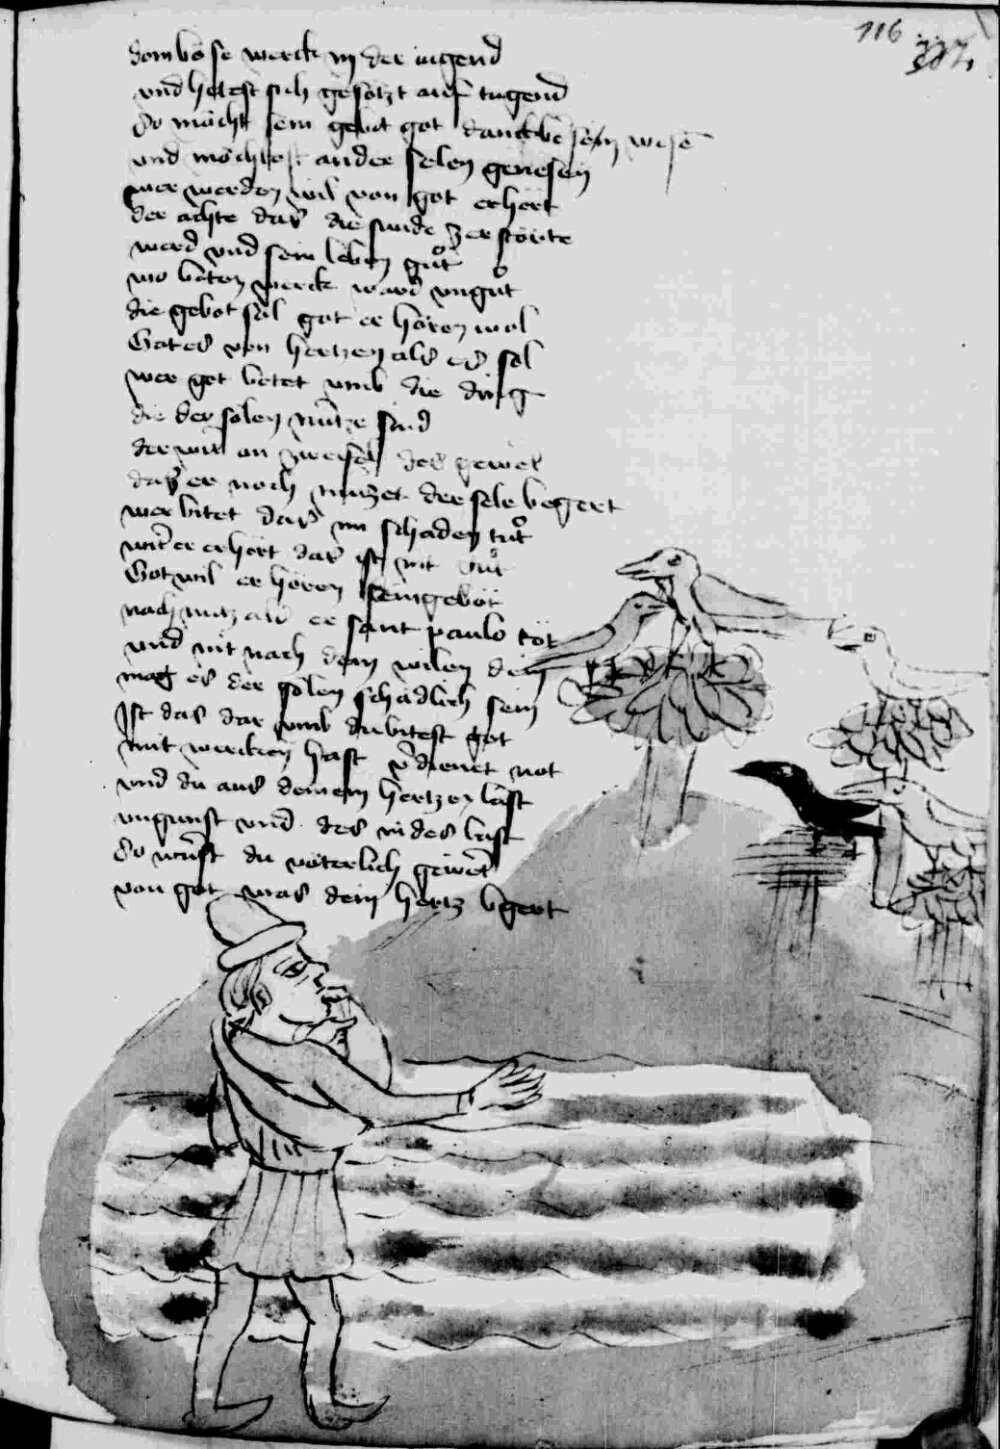 116
dein böse werck in der iugend
vnd hetest sich gesötzt auf tugend
So möcht sein gebot got danckbe sein wesē
vnd möchtest ander selen genesen
wer werden wil von got erhört
der achte daß die sunde zerstörte
werd vnd sein leben gůt
wo beten werck ward vngůt
die gebot sol got er hören wol
Gat es von hertzen als es sol
wer got betet vmb die ding
die der selen nutze sind
der wirt on zweifel des gewert
daß er noch nutzet der sele begert
wer bitet daß im schaden tůt
wirt er erhört daß ist nit gůt
Got wil er hören sein geböt
nach nutz als er sant paulo töt
vnd nit nach dem wilen dein
mag es der selen schedlich sein
Ist das dar vmb du bitest got
mit wercken hast v̄dienet not
vnd du aus deinem hertzen lăst
vngunst vnd des nides last
So wirst du väterlich gewert
von got was dein hertz bgert